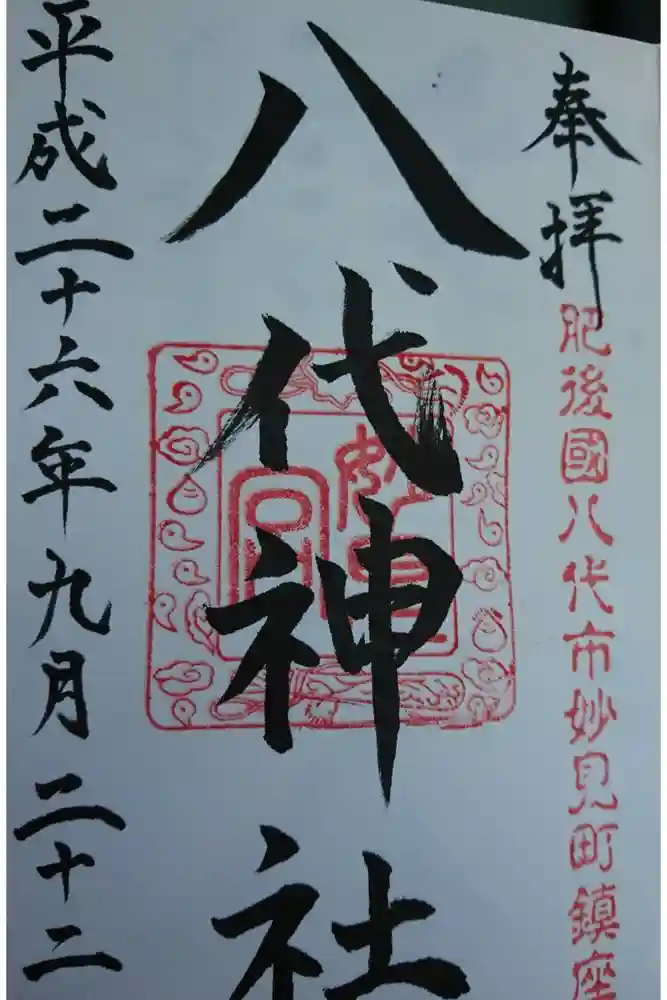 奉拝
肥後國八代市妙見町鎮座
八代神社
妙見
宮
平成二十六年九月二十二